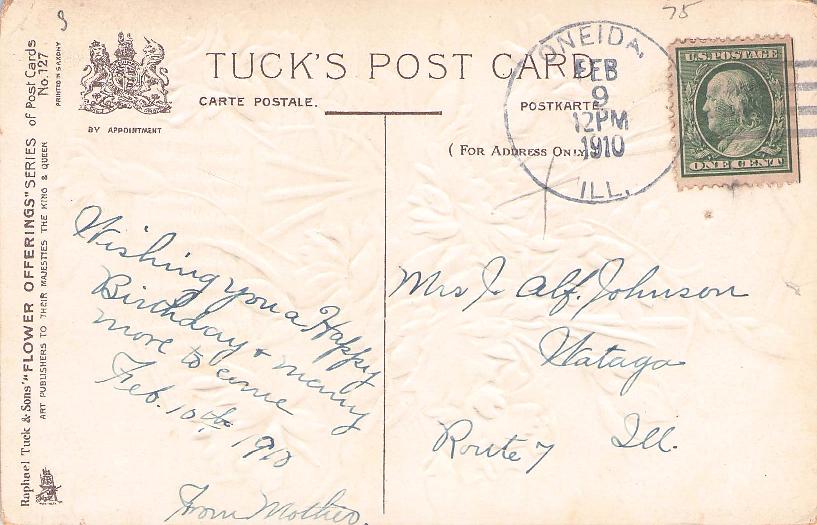 9
75
TUCK'S POST CARD
CARTE POSTALE.
POSTKARTE
BY APPOINTMENT
( FOR ADDRESS ONLY.
Raphael Tuck & Sons' "FLOWER OFFERINGS" SERIES of Post Cards
No. 127
ART PUBLISHERS TO THEIR MAJESTIES THE KING & QUEEN
PRINTED IN SAXONY
ONEIDA,
FEB
9
12PM
1910
ILL.
U.S. POSTAGE
ONE CENT
Wishing you a Happy
Birthday & many
more to come
Feb. 10th 1910
From Mother.
Mrs J. Alf. Johnson
Wataga
Route 7 Ill.